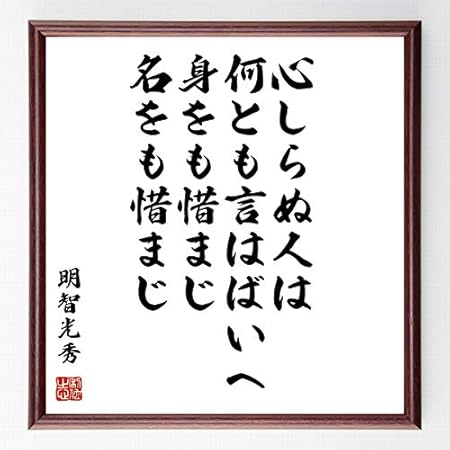 心しらぬ人は
何とも言はばいへ
身をも惜まじ
名をも惜まじ
明智光秀